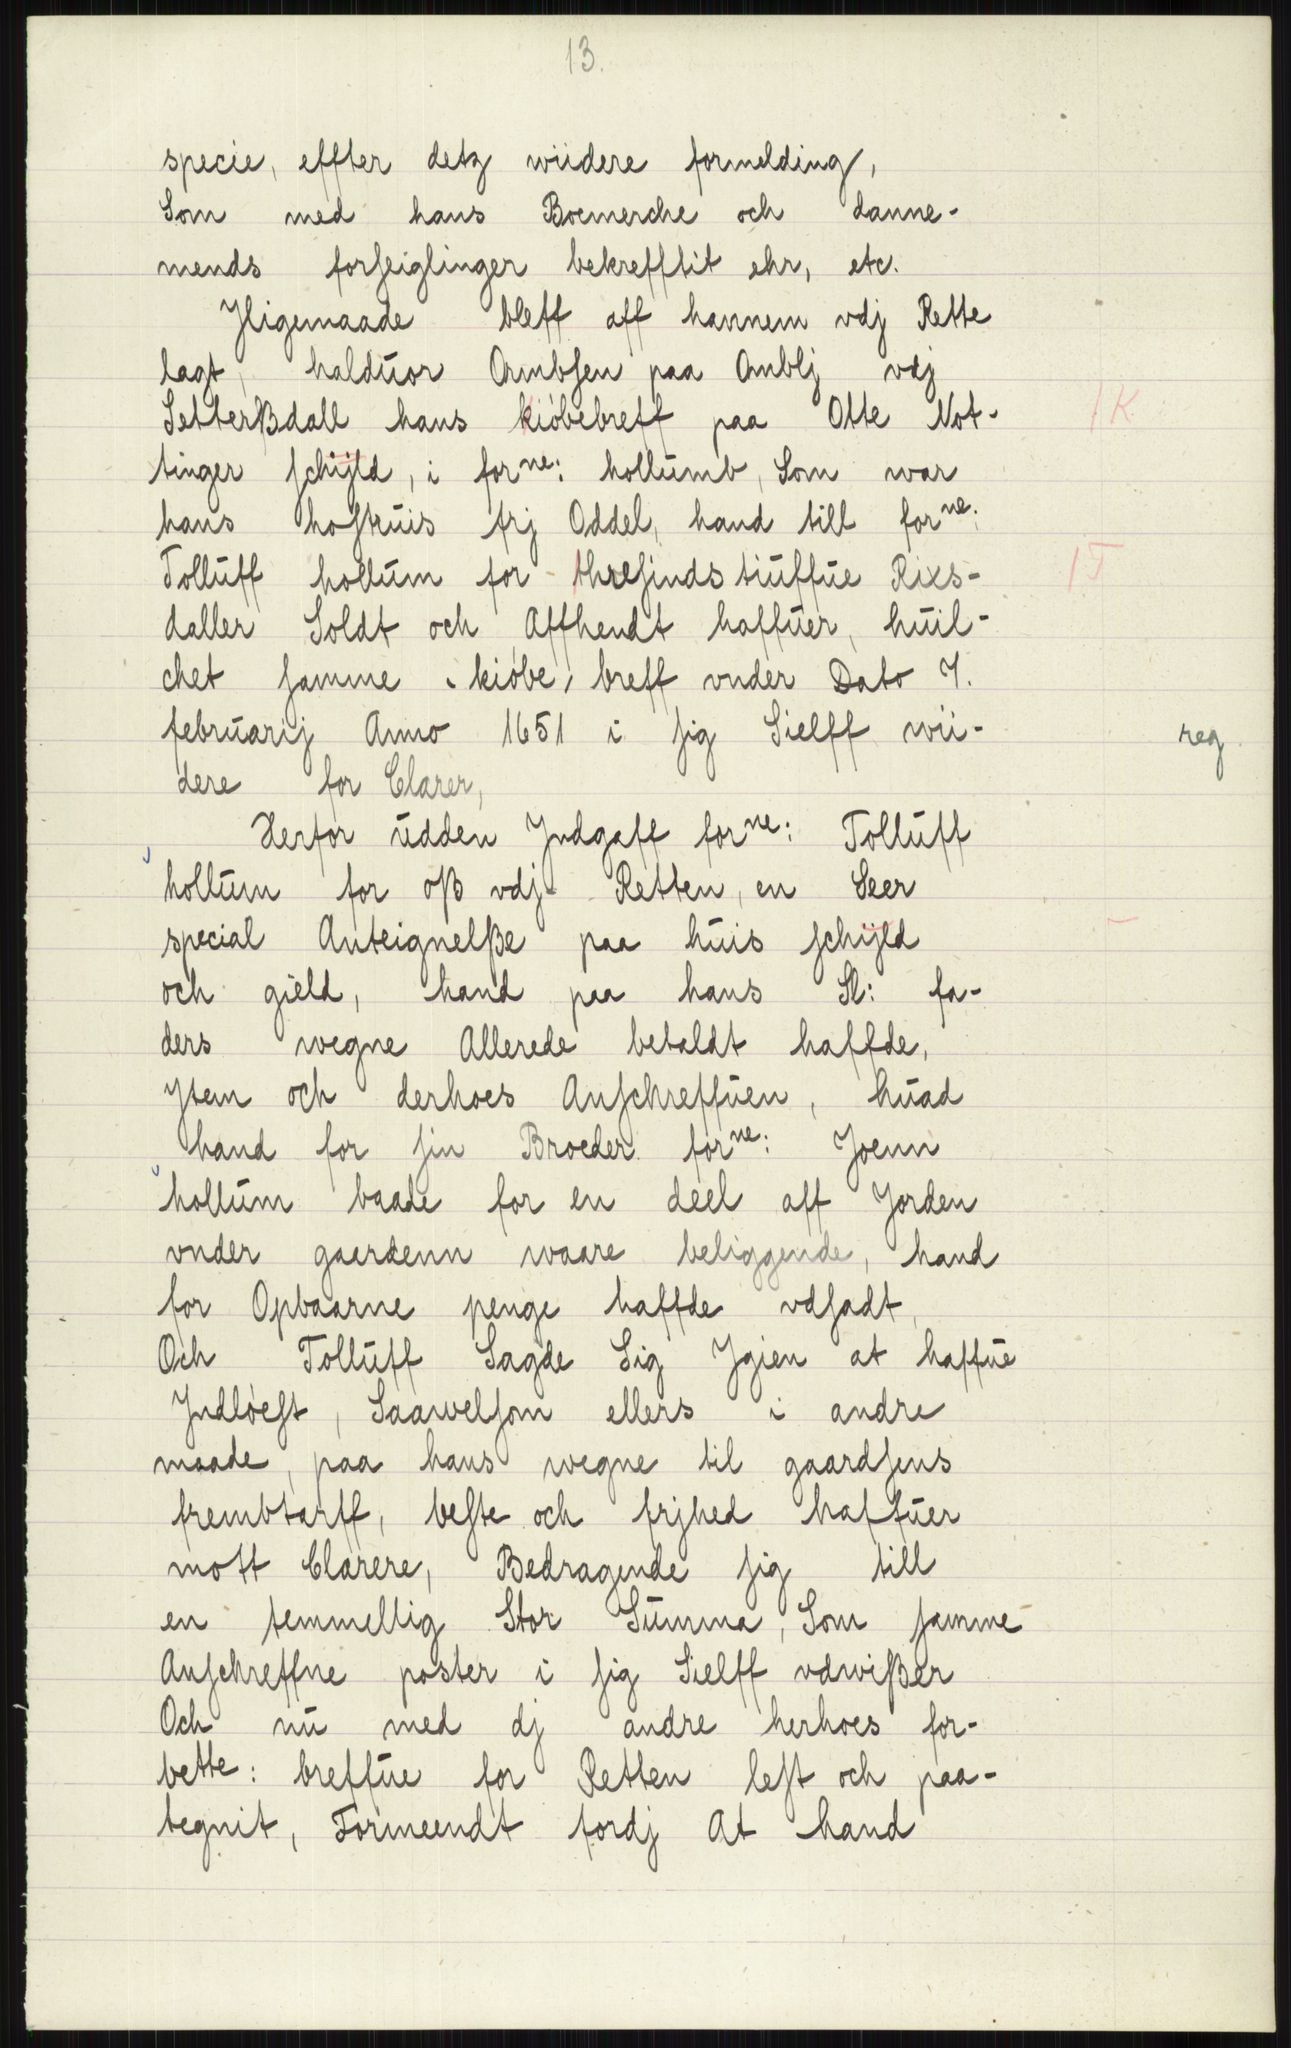 13.
specie, effter detz wiidere formelding,
Som med hans Boemerche och danne-
mends forseiglinger bekrefftit ehr, etc.
Jligemaade bleff aff hannem vdj Rette
lagt, halduor Ambsen paa Amblj vdj
Setterßdall hans kiøbebreff paa Otte Not-
tinger schijld, i forne: hollumb, Som war
hans hostruis frj Oddel, hand till forne:
Tolluff hollum for thresindstiuffue Rixs-
daller Soldt och Affhendt haffuer, huil-
chet samme kiøbe, breff vnder Dato 7.
februarij Anno 1651 i sig Sielff wii-
dere for Clarer,
Herfor udden Jndgaff forne: Tolluff
hollum for oß vdj Retten, en Seer
special Anteignelße paa huis schijld
och gield, hand paa hans Sl: fa-
ders wegne Allerede betaldt haffde,
Jtem och derhoes Anschreffuen, huad
hand for sin Broeder forne: Joenn
hollum baade for en deel aff Jorden
vnder gaardenn waare beliggende, hand
for Opbaarne penge haffde vdsadt,
Och Tolluff Sagde Sig Jgien at haffue
Jndløest, Saawelsom ellers i andre
maade, paa hans wegne til gaardsens
frembtarff, beste och frjhed haffuer
mott Clarere, Bedragende sig till
en temmellig Stor Summa, Som samme
Anschreffne poster i sig Sielff vdwißer
Och nu med dj andre herhoes for-
bette: breffue for Retten lest och paa-
tegnit, Formeendt fordj At hand
1K
1T
reg